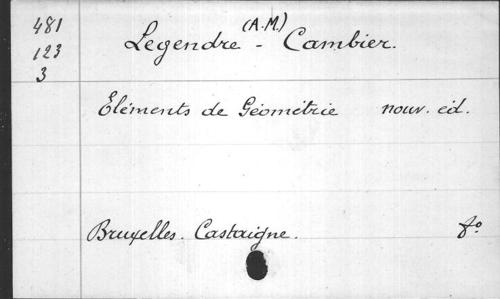 481
123
3
Legendre (A.M.) - Cambier.
Éléments de Géométrie nouv. éd.
Bruxelles. Castaigne. 8º